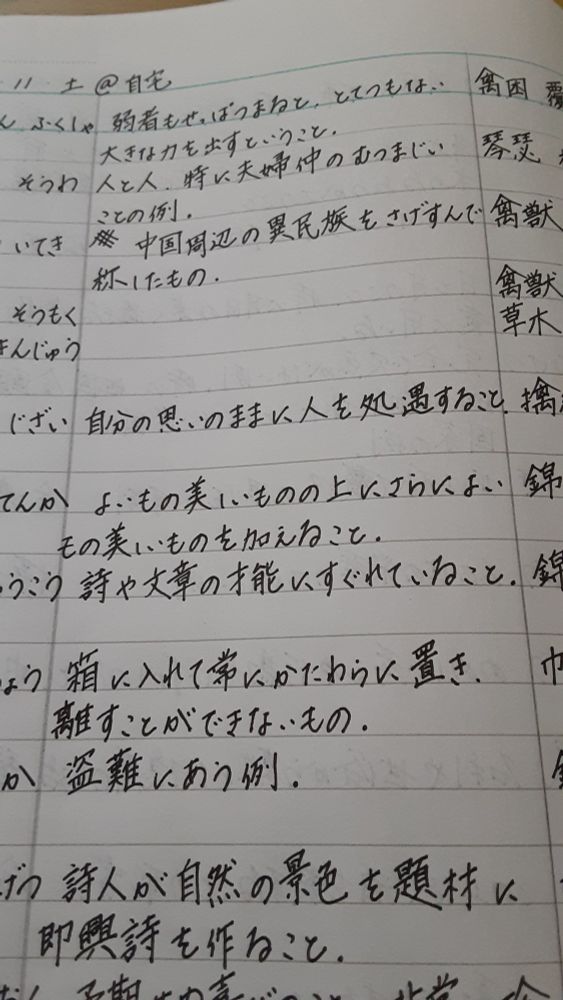 11 土 @自宅
ん ふくしゃ 弱者もせっぱつまると、とてつもない 禽困 覆
大きな力を出すということ.
そうわ 人と人、特に夫婦仲のむつまじい 琴瑟
ことの例.
いてき 中国周辺の異民族をさげすんで 禽獣
称したもの. 禽獣
そうもく 草木
きんじゅう
じざい 自分の思いのままに人を処遇すること. 擒
てんか よいもの美しいものの上にさらによい 錦
もの美しいものを加えること.
うこう 詩や文章の才能にすぐれていること. 錦
ょう 箱に入れて常にかたわらに置き. 巾
離すことができないもの.
か 盗難にあう例.
げつ 詩人が自然の景色を題材に
即興詩を作ること.